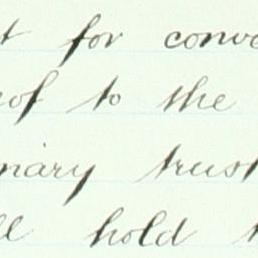 t for conve
eof to the
nary trust
ll hold t